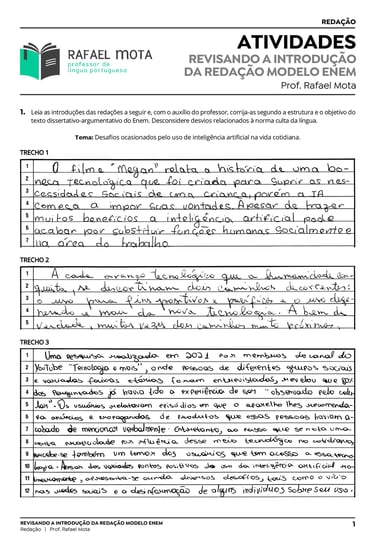 REDAÇÃO
RAFAEL MOTA
professor de
língua portuguesa
ATIVIDADES
REVISANDO A INTRODUÇÃO
DA REDAÇÃO MODELO ENEM
Prof. Rafael Mota
1. Leia as introduções das redações a seguir e, com o auxílio do professor, corrija-as segundo a estrutura e o objetivo do
texto dissertativo-argumentativo do Enem. Desconsidere desvios relacionados à norma culta da língua.
Tema: Desafios ocasionados pelo uso de inteligência artificial na vida cotidiana.
TRECHO 1
1 O filme "Megan" relata a história de uma bo-
2 neca tecnológica que foi criada para suprir as nes-
3 cessidades sociais de uma criança, porém a IA
4 começa a impor suas vontades. Apesar de trazer
5 muitos benefícios a inteligência artificial pode
6 acabar por substituir funções humanas socialmente e
7 na área do trabalho.
TRECHO 2
1 A cada avanço tecnológico que a humanidade con-
2 quista, se descortinam dois caminhos decorrentes:
3 o uso para fins positivos e pacíficos e o uso dege-
4 nerado e mau da nova tecnologia. A bem da
5 verdade, muitas vezes dois caminhos muito próximos.
TRECHO 3
1 Uma pesquisa realizada em 2021 por membros do canal do
2 YouTube "Tecnologia e mais", onde pessoas de diferentes grupos sociais
3 e variadas faixas etárias foram entrevistadas, revelou que 80%
4 dos perguntados já havia tido a experiência de ser "observado pelo celu-
5 lar". Os usuários relataram episódios em que o aparelho lhes recomenda-
6 va anúncios e propagandas de produtos que essas pessoas haviam a-
7 cabado de mencionar verbalmente. Entretanto, ao passo que se nota uma
8 certa por influência desse meio tecnológico no cotidiano,
9 percebe-se também um temor dos usuários que tem acesso a essa tecno-
10 logia. Apesar dos variados pontos positivos do uso da inteligência artificial
11 apresenta-se ainda diversos desafios, tais como o vício
12 nas redes sociais e a desinformação de alguns indivíduos sobre seu uso.
REVISANDO A INTRODUÇÃO DA REDAÇÃO MODELO ENEM
Redação | Prof. Rafael Mota
1